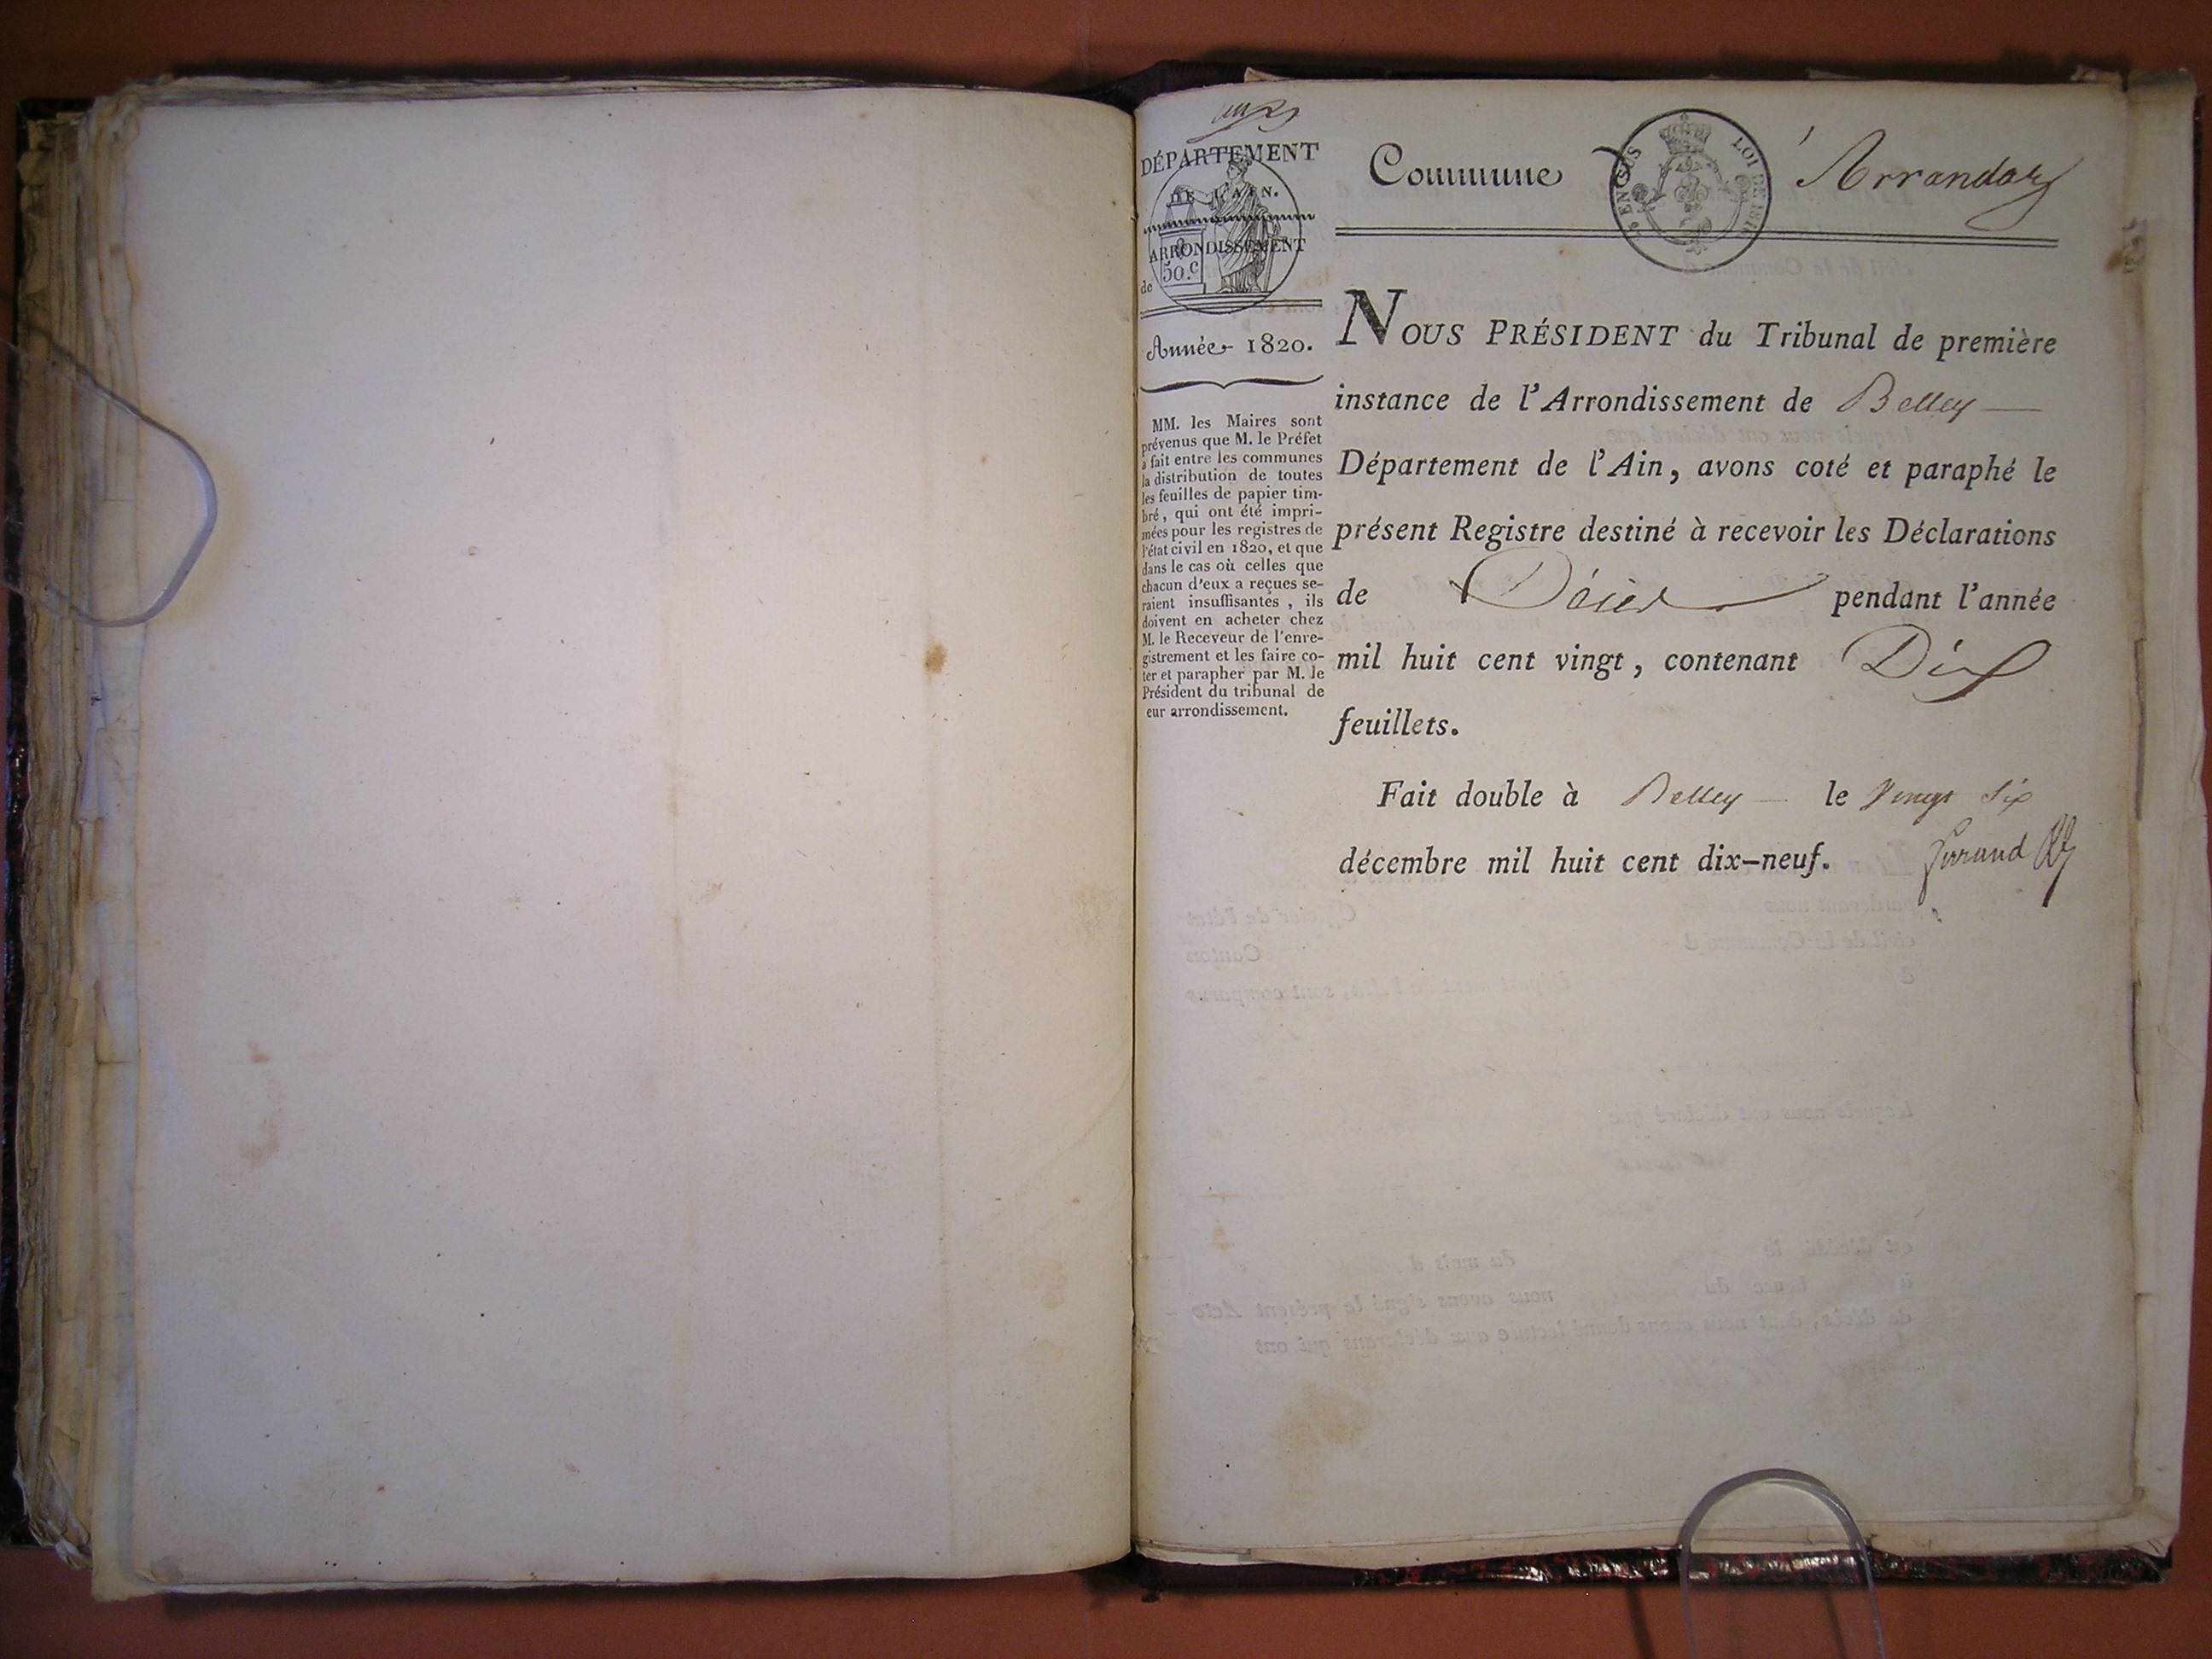 DÉPARTEMENT
DE L'AIN.
ARRONDISSEMENT
50.c
de
Année 1820.
MM. les Maires sont
prévenus que M. le Préfet
a fait entre les communes
la distribution de toutes
les feuilles de papier tim-
bré, qui ont été impri-
mées pour les registres de
l'état civil en 1820, et que
dans le cas où celles que
chacun d'eux a reçues se-
raient insuffisantes, ils
doivent en acheter chez
M. le Receveur de l'enre-
gistrement et les faire co-
ter et parapher par M. le
Président du tribunal de
eur arrondissement.
Commune d'Arrandas
EN SUS LOI DE 1816
NOUS PRÉSIDENT du Tribunal de première
instance de l'Arrondissement de Belley
Département de l'Ain, avons coté et paraphé le
présent Registre destiné à recevoir les Déclarations
de Décès pendant l'année
mil huit cent vingt, contenant Dix
feuillets.
Fait double à Belley le Vingt Six
décembre mil huit cent dix-neuf.